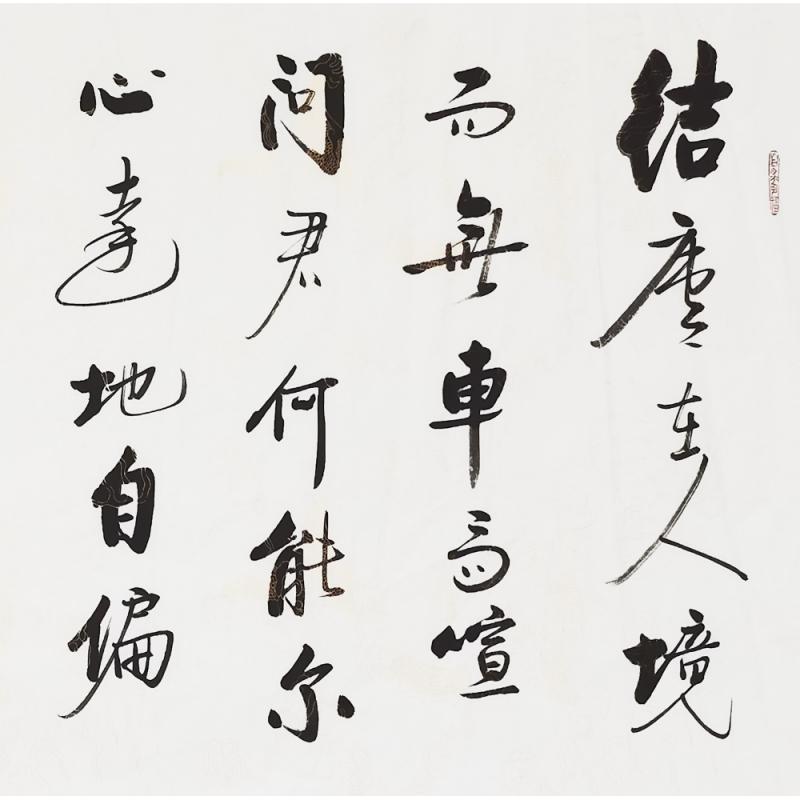 结廬在人境
而無車马喧
问君何能尔
心遠地自偏